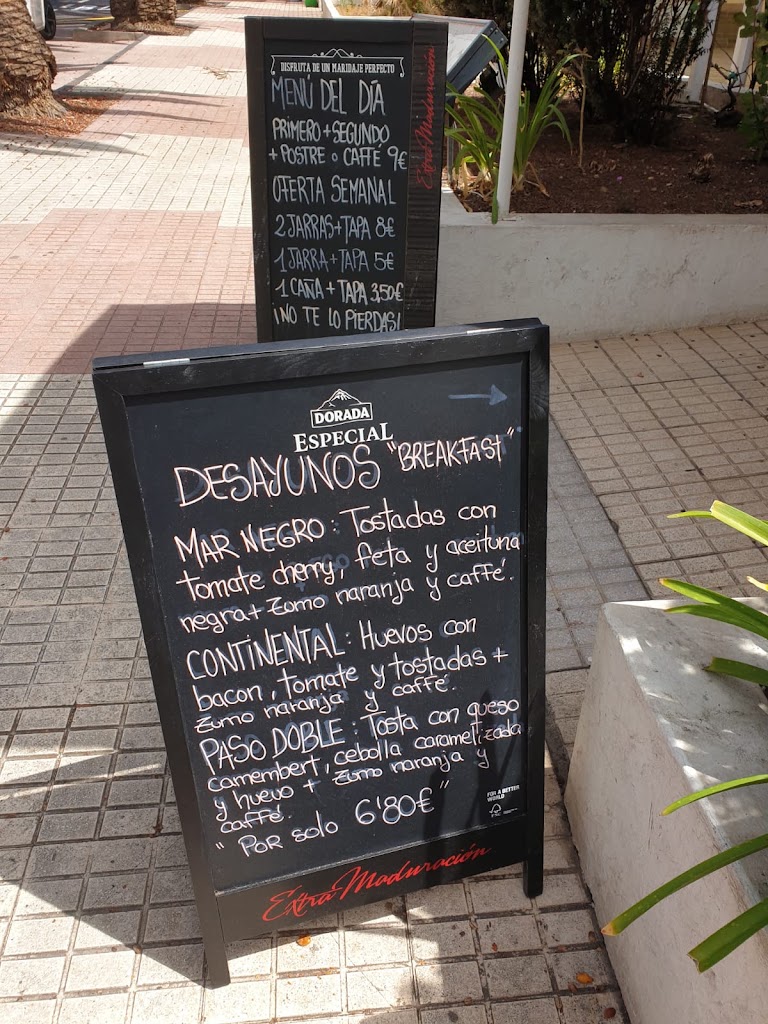 DISFRUTA DE UN MARIDAJE PERFECTO
MENÚ DEL DÍA
PRIMERO + SEGUNDO
+ POSTRE o CAFFÉ 9€
OFERTA SEMANAL
2 JARRAS + TAPA 8€
1 JARRA + TAPA 5€
1 CAÑA + TAPA 3,50€
¡NO TE LO PIERDAS!
Extra Maduración
DORADA
ESPECIAL
DESAYUNOS "BREAKFAST"
MAR NEGRO: Tostadas con
tomate cherry, feta y aceituna
negra + Zumo naranja y caffé.
CONTINENTAL: Huevos con
bacon, tomate y tostadas +
Zumo naranja y caffé.
PASO DOBLE: Tosta con queso
camembert, cebolla caramelizada
y huevo + Zumo naranja y
caffé.
"Por solo 6'80€"
FOR A BETTER
WORLD
FSC
Extra Maduración